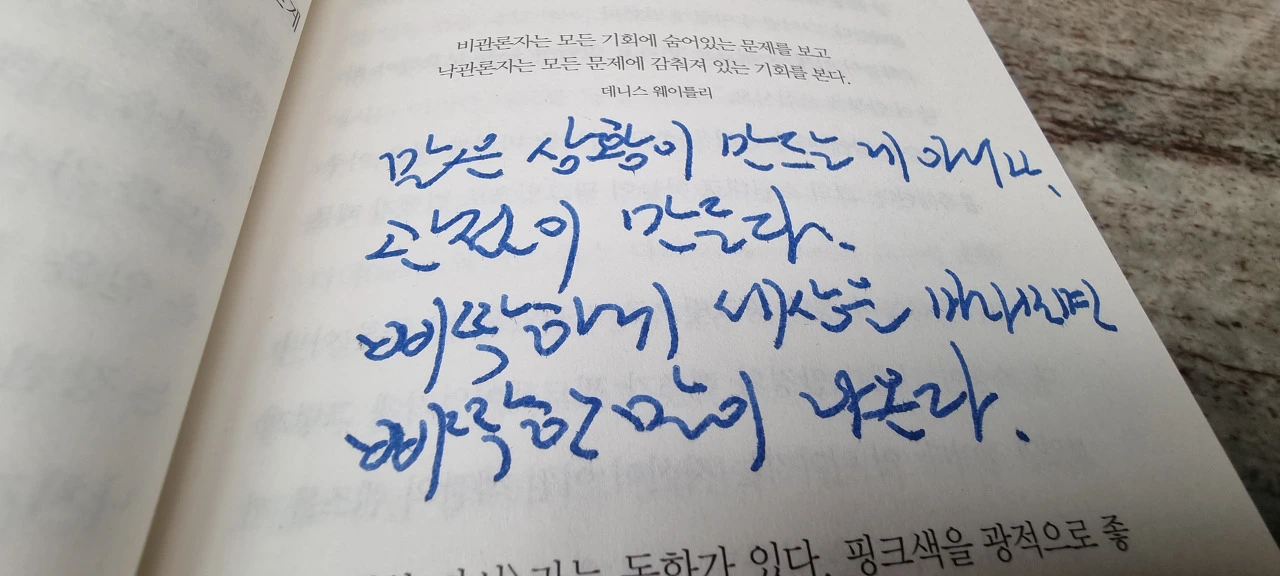 비관론자는 모든 기회에 숨어있는 문제를 보고
낙관론자는 모든 문제에 감춰져 있는 기회를 본다.
데니스 웨이틀리
말은 상황이 만드는게 아니라,
관점이 만든다.
삐딱하게 세상을 바라보면
삐딱한 말이 나온다.
는 동화가 있다. 핑크색을 광적으로 좋